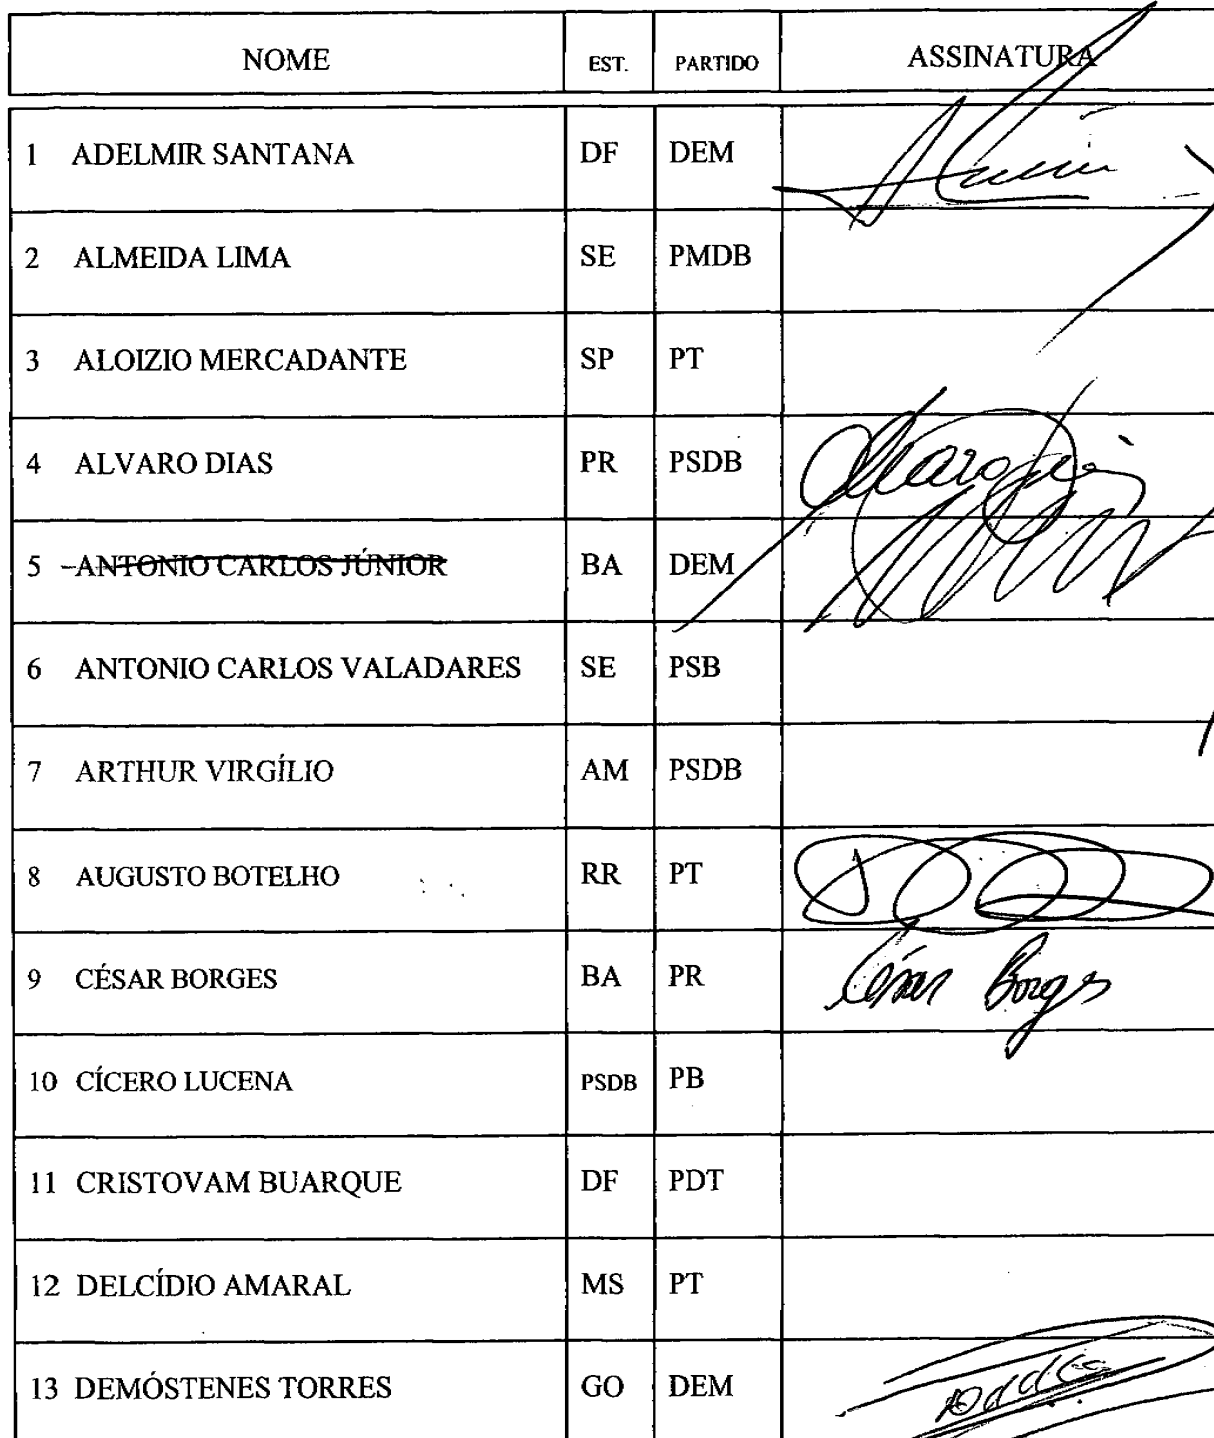 NOME EST. PARTIDO ASSINATURA
1 ADELMIR SANTANA DF DEM
2 ALMEIDA LIMA SE PMDB
3 ALOIZIO MERCADANTE SP PT
4 ALVARO DIAS PR PSDB Alvaro Dias
5 ANTONIO CARLOS JÚNIOR BA DEM
6 ANTONIO CARLOS VALADARES SE PSB
7 ARTHUR VIRGÍLIO AM PSDB
8 AUGUSTO BOTELHO RR PT
9 CÉSAR BORGES BA PR César Borges
10 CÍCERO LUCENA PSDB PB
11 CRISTOVAM BUARQUE DF PDT
12 DELCÍDIO AMARAL MS PT
13 DEMÓSTENES TORRES GO DEM